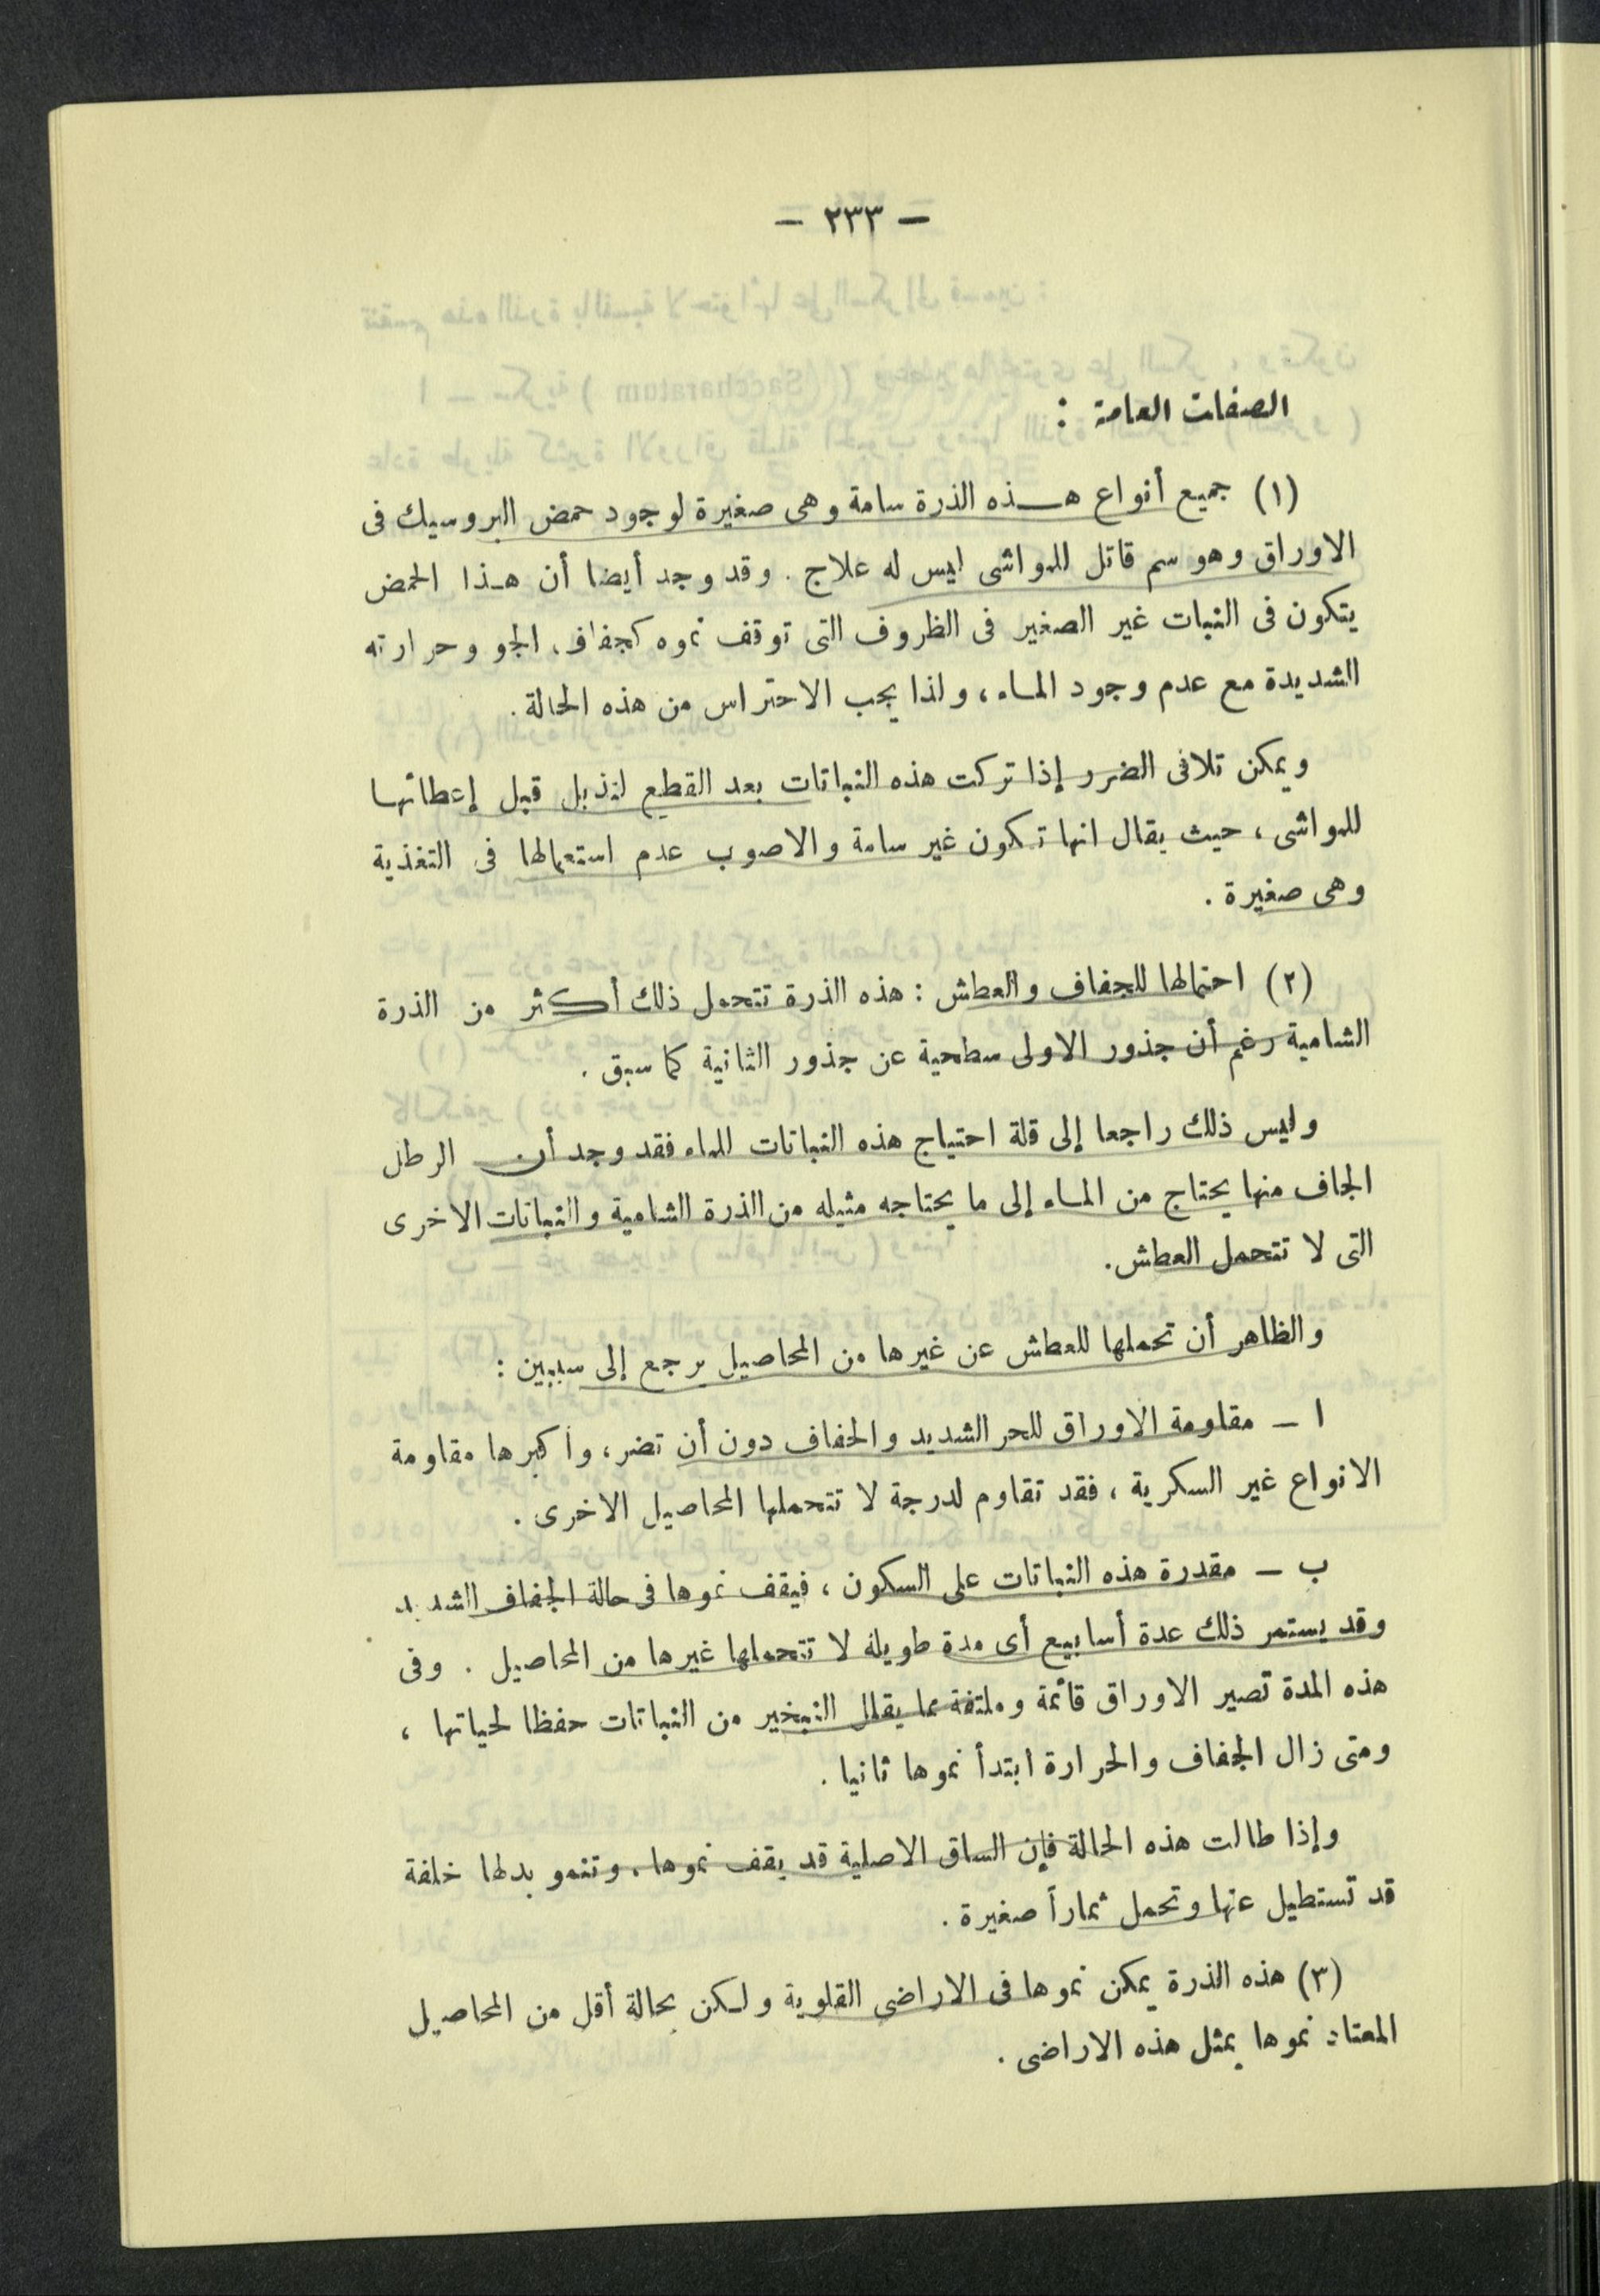 — ٢٣٣ —
الصفات العامة :
(١) جميع أنواع هـذه الذرة سامة وهى صغيرة لوجود حمض البروسيك فى
الاوراق وهو سم قاتل للمواشى ليس له علاج . وقد وجد أيضا أن هذا الحمض
يتكون فى النبات غير الصغير فى الظروف التى توقف نموه كجفاف الجو وحرارته
الشديدة مع عدم وجود الماء ، ولذا يجب الاحتراس من هذه الحالة .
ويمكن تلافى الضرر إذا تركت هذه النباتات بعد القطع لتذبل قبل إعطائها
للمواشى ، حيث يقال انها تكون غير سامة والاصوب عدم استعمالها فى التغذية
وهى صغيرة .
(٢) احتمالها للجفاف والعطش : هذه الذرة تتحمل ذلك أكثر من الذرة
الشامية رغم أن جذور الاولى سطحية عن جذور الثانية كما سبق .
وليس ذلك راجعا إلى قلة احتياج هذه النباتات للماء فقد وجد أن الرطل
الجاف منها يحتاج من الماء إلى ما يحتاجه مثيله من الذرة الشامية والنباتات الاخرى
التى لا تتحمل العطش .
والظاهر أن تحملها للعطش عن غيرها من المحاصيل يرجع إلى سببين :
ا — مقاومة الاوراق للحر الشديد والجفاف دون أن تضر ، وأكبرها مقاومة
الانواع غير السكرية ، فقد تقاوم لدرجة لا تتحملها المحاصيل الاخرى .
ب — مقدرة هذه النباتات على السكون ، فيقف نموها فى حالة الجفاف الشديد
وقد يستمر ذلك عدة أسابيع أى مدة طويلة لا تتحملها غيرها من المحاصيل . وفى
هذه المدة تصير الاوراق قائمة وملتفة مما يقلل التبخير من النباتات حفظا لحياتها ،
ومتى زال الجفاف والحرارة ابتدأ نموها ثانيا .
وإذا طالت هذه الحالة فإن الساق الاصلية قد يقف نموها . وتنمو بدلها خلفة
قد تستطيل عنها وتحمل ثماراً صغيرة .
(٣) هذه الذرة يمكن نموها فى الاراضى القلوية ولكن بحالة أقل من المحاصيل
المعتاد نموها بمثل هذه الاراضى .